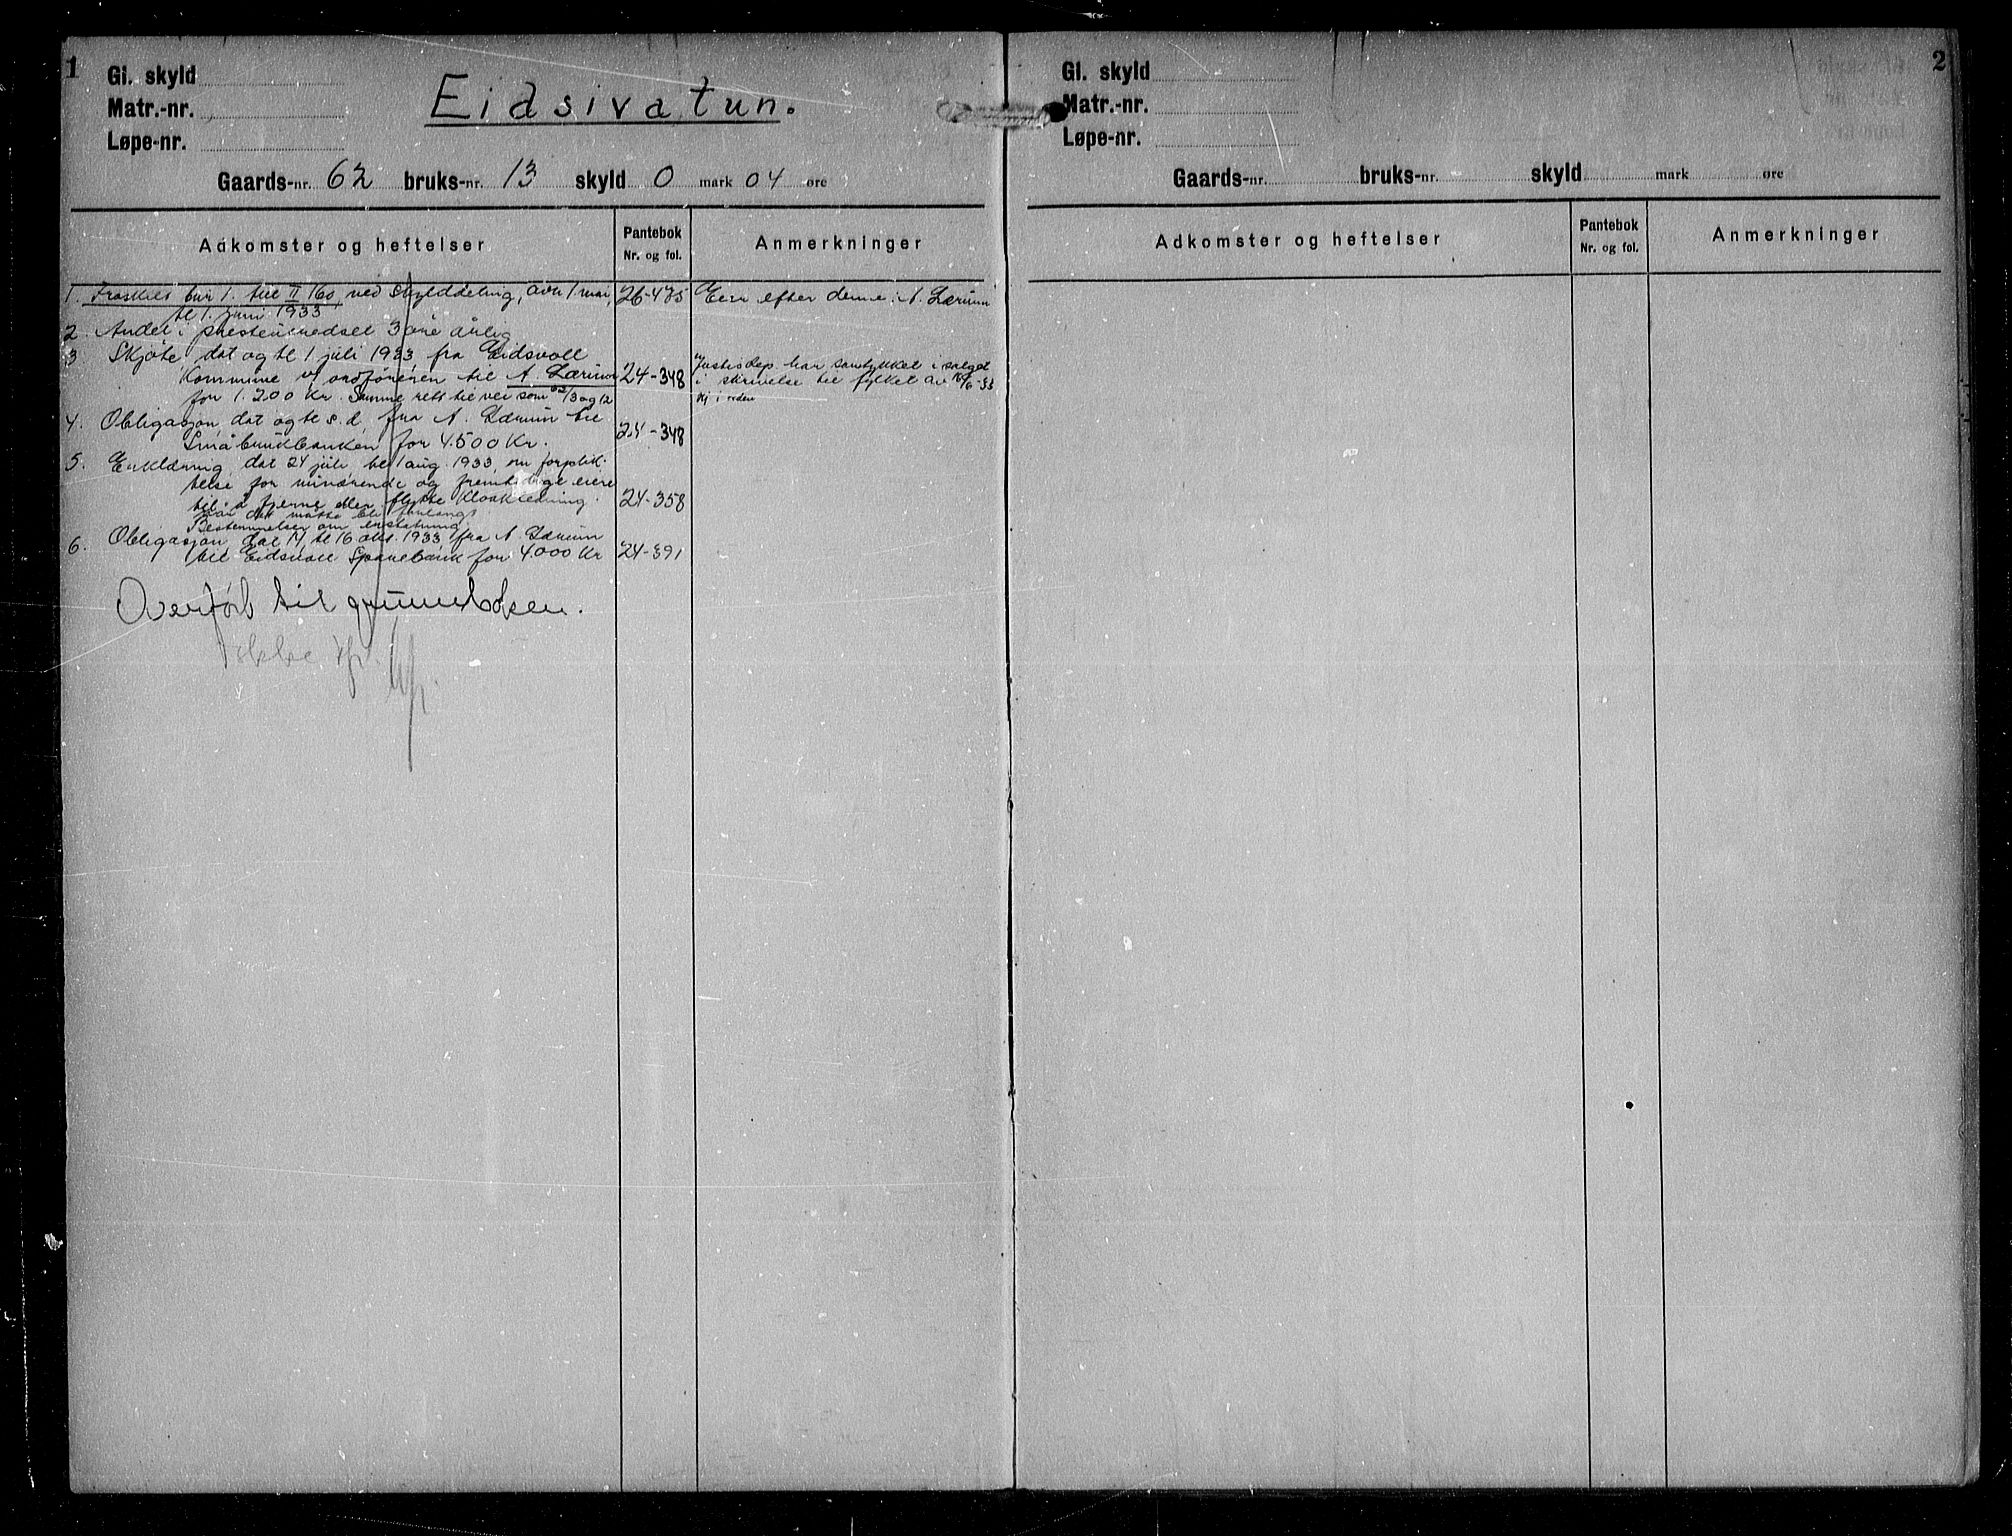 1
Gl. skyld
Matr.-nr.
Løpe-nr.
Eidsivatun.
Gaards-nr. 62 bruks-nr. 13 skyld 0 mark 04 øre
Adkomster og heftelser
Pantebok
Nr. og fol.
Anmerkninger
1. Fraskilt bnr 1. till II 160, ved skylddeling, avh 1. mai, 26-435 Eier efter denne: A. Lærum
tl 1. juni 1933
2. Andel i presteinnedsel 3 øre årlig
3 Skjøte, dat og tl 1 juli 1933 fra Eidsvoll
Kommune v/ ordføreren til A. Lærum 24-348
for 1.200 Kr. Samme rett til vei som 62/3 og 12
Justisdep har samtykket i salget
i skrivelse til fylket av 16/6-33
4. Obligasjon, dat og tl s.d, fra A. Lærum til
Småbrukbanken for 4.500 Kr. 24-348
5. Erklæring, dat 24 juli, tl 1 aug. 1933, om forplik-
telse for nuværende og fremtidige eiere
til å fjerne eller flytte kloakkledning. 24-358
når det måtte bli forlangt
Bestemmelser om erstatning.
6. Obligasjon, dat 14 tl 16 okt. 1933 fra A. Lærum
til Eidsvoll Sparebank for 4.000 Kr 24-391
Overført til grunnboken.
2
Gl. skyld
Matr.-nr.
Løpe-nr.
Gaards-nr. bruks-nr. skyld mark øre
Adkomster og heftelser
Pantebok
Nr. og fol.
Anmerkninger